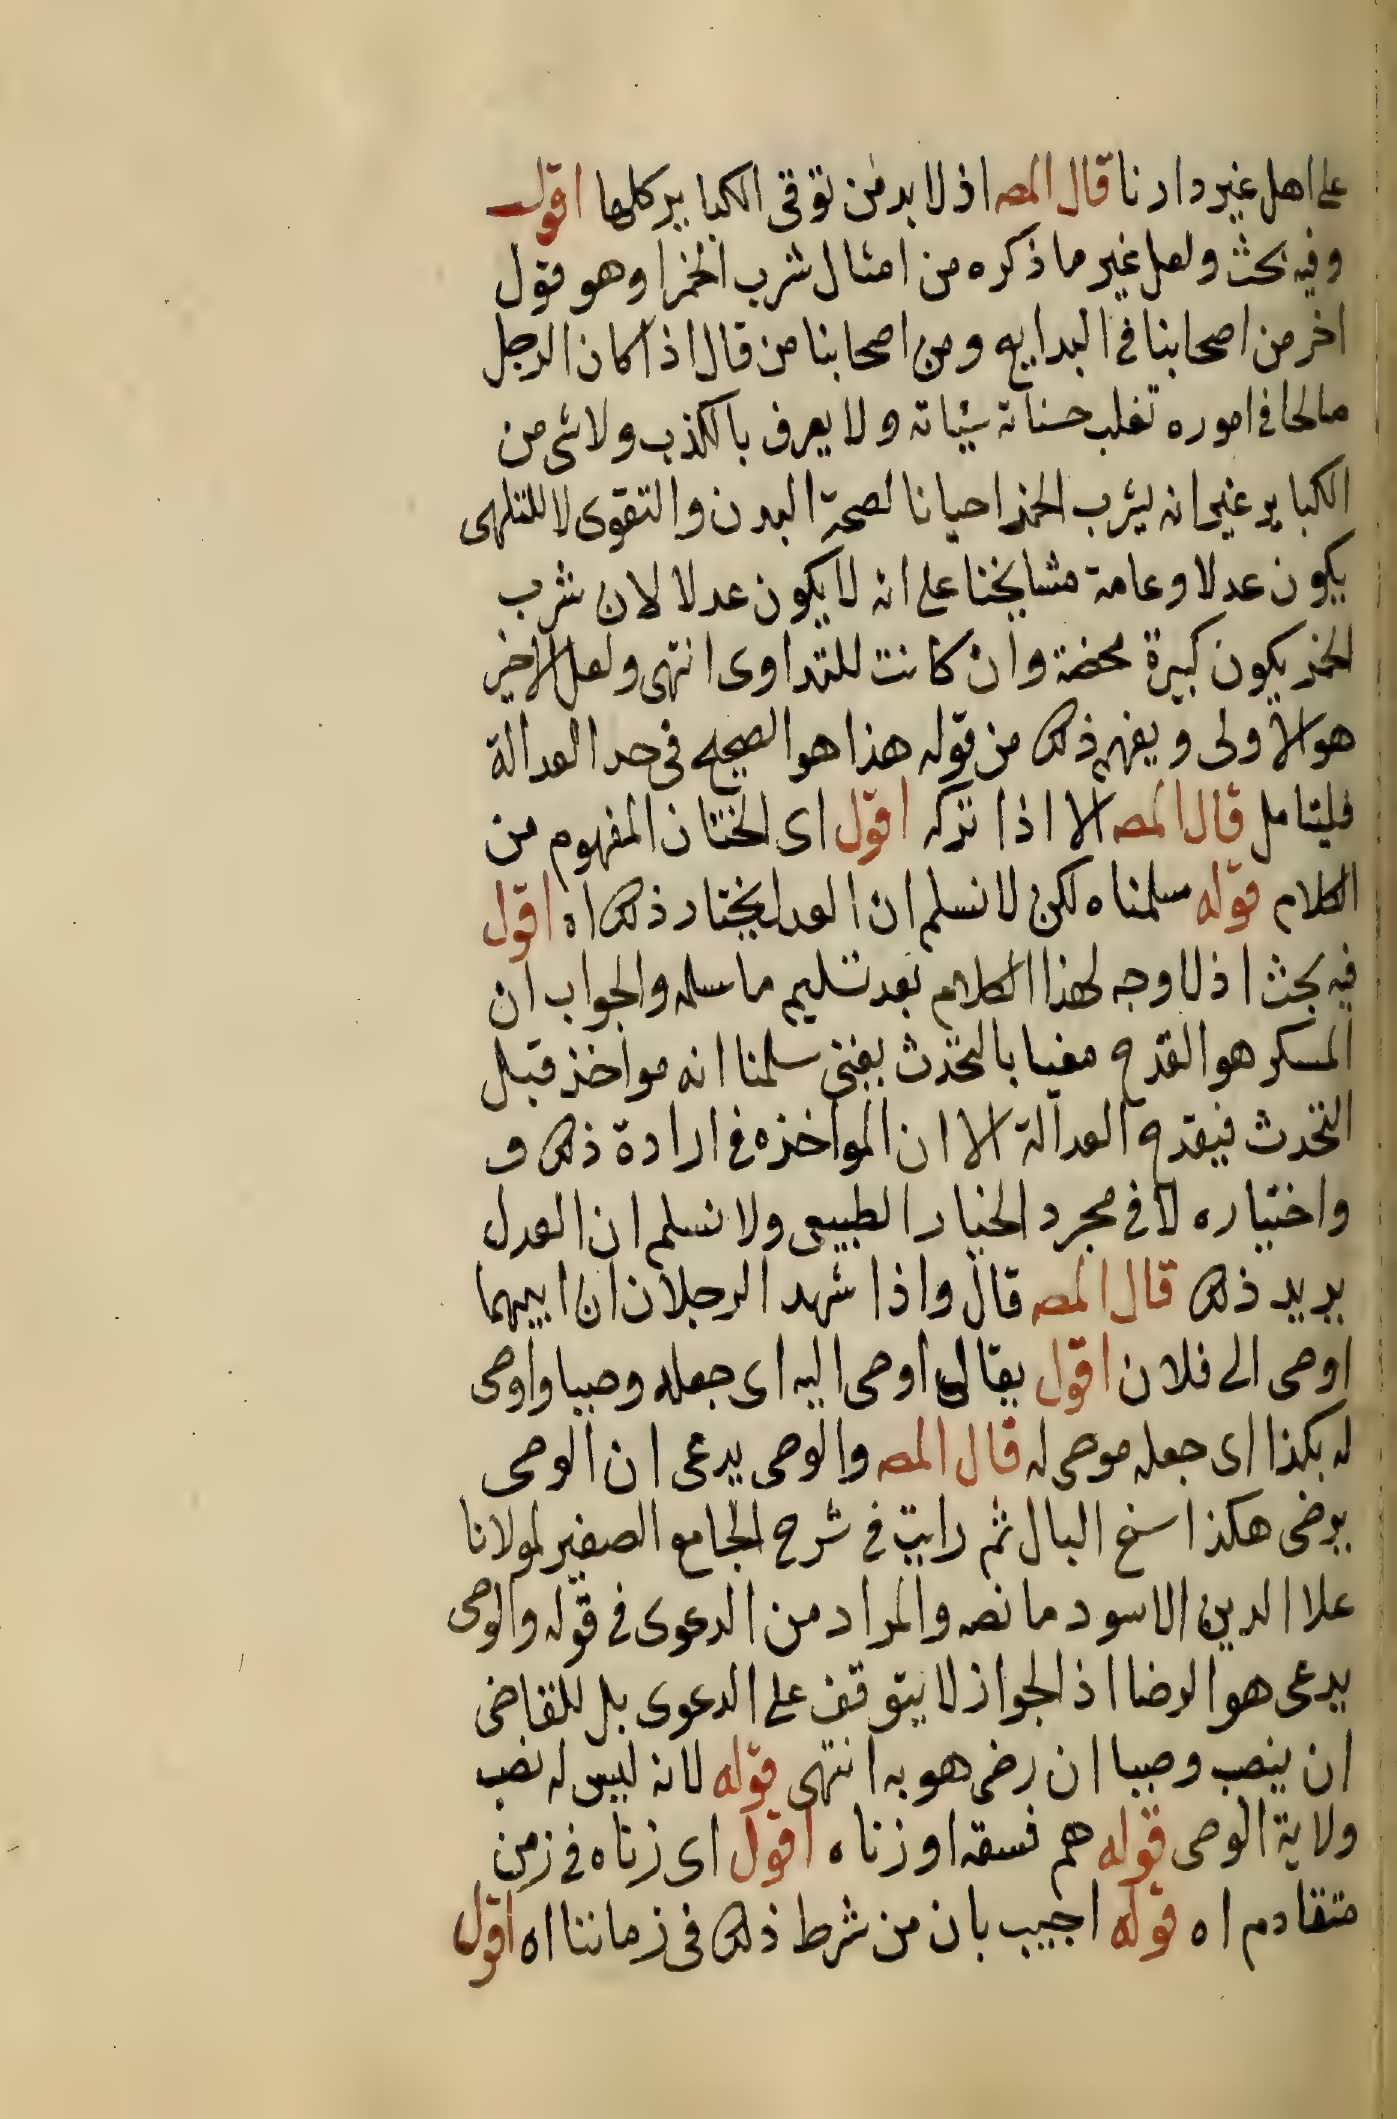 على اهل غير دارنا قال المصه اذ لا بد من توقى الكبا ير كلها اقول
وفيه بحث ولعل غير ما ذكره من امثال شرب الخمر او هو قول
اخر من اصحابنا فى البدايع ومن اصحابنا من قال اذا كان الرجل
صالحا فى اموره تغلب حسناته سيئاته ولا يعرف بالكذب ولا شئ من
الكباير غير انه يشرب الخمر احيانا لصحة البدن والتقوى لا للتلهى
يكون عدلا وعامة مشايخنا على انه لا يكون عدلا لان شرب
الخمر يكون كبيرة محضة وان كانت للتداوى انتهى ولعل الاخير
هو الاولى ويفهم ذلك من قوله هذا هو الصحيح فى حد العدالة
فليتامل قال المصه الا اذا تركه اقول اى الختان المفهوم من
الكلام قوله سلمناه لكن لا نسلم ان العدل يختار ذلك اه اقول
فيه بحث اذ لا وجه لهذا الكلام بعد تسليم ما سلمه والجواب ان
المسكر هو القدح مغيا بالتحدث يعنى سلمنا انه مواخذ قبل
التحدث فيقدح العدالة الا ان المواخذه فى ارادة ذلك و
واختياره لا فى مجرد الخيار الطبيعى ولا نسلم ان العدل
يريد ذلك قال المصه قال واذا شهد الرجلان ان ابيهما
اوصى الى فلان اقول يقال اوصى اليه اى جعله وصيا واوصى
له بكذا اى جعله موصى له قال المصه والوصى يدعى ان الوصى
يرضى هكذا سنح البال ثم رايت فى شرح الجامع الصغير لمولانا
علا الدين الاسود ما نصه والمراد من الدعوى فى قوله والوصى
يدعى هو الرضا اذ الجواز لا يتوقف على الدعوى بل للقاضى
ان ينصب وصيا ان رضى هو به انتهى قوله لانه ليس له نصب
ولاية الوصى قوله هم فسقه او زناه اقول اى زناه فى زمن
متقادم اه قوله اجيب بان من شرط ذلك فى زماننا اه اقول